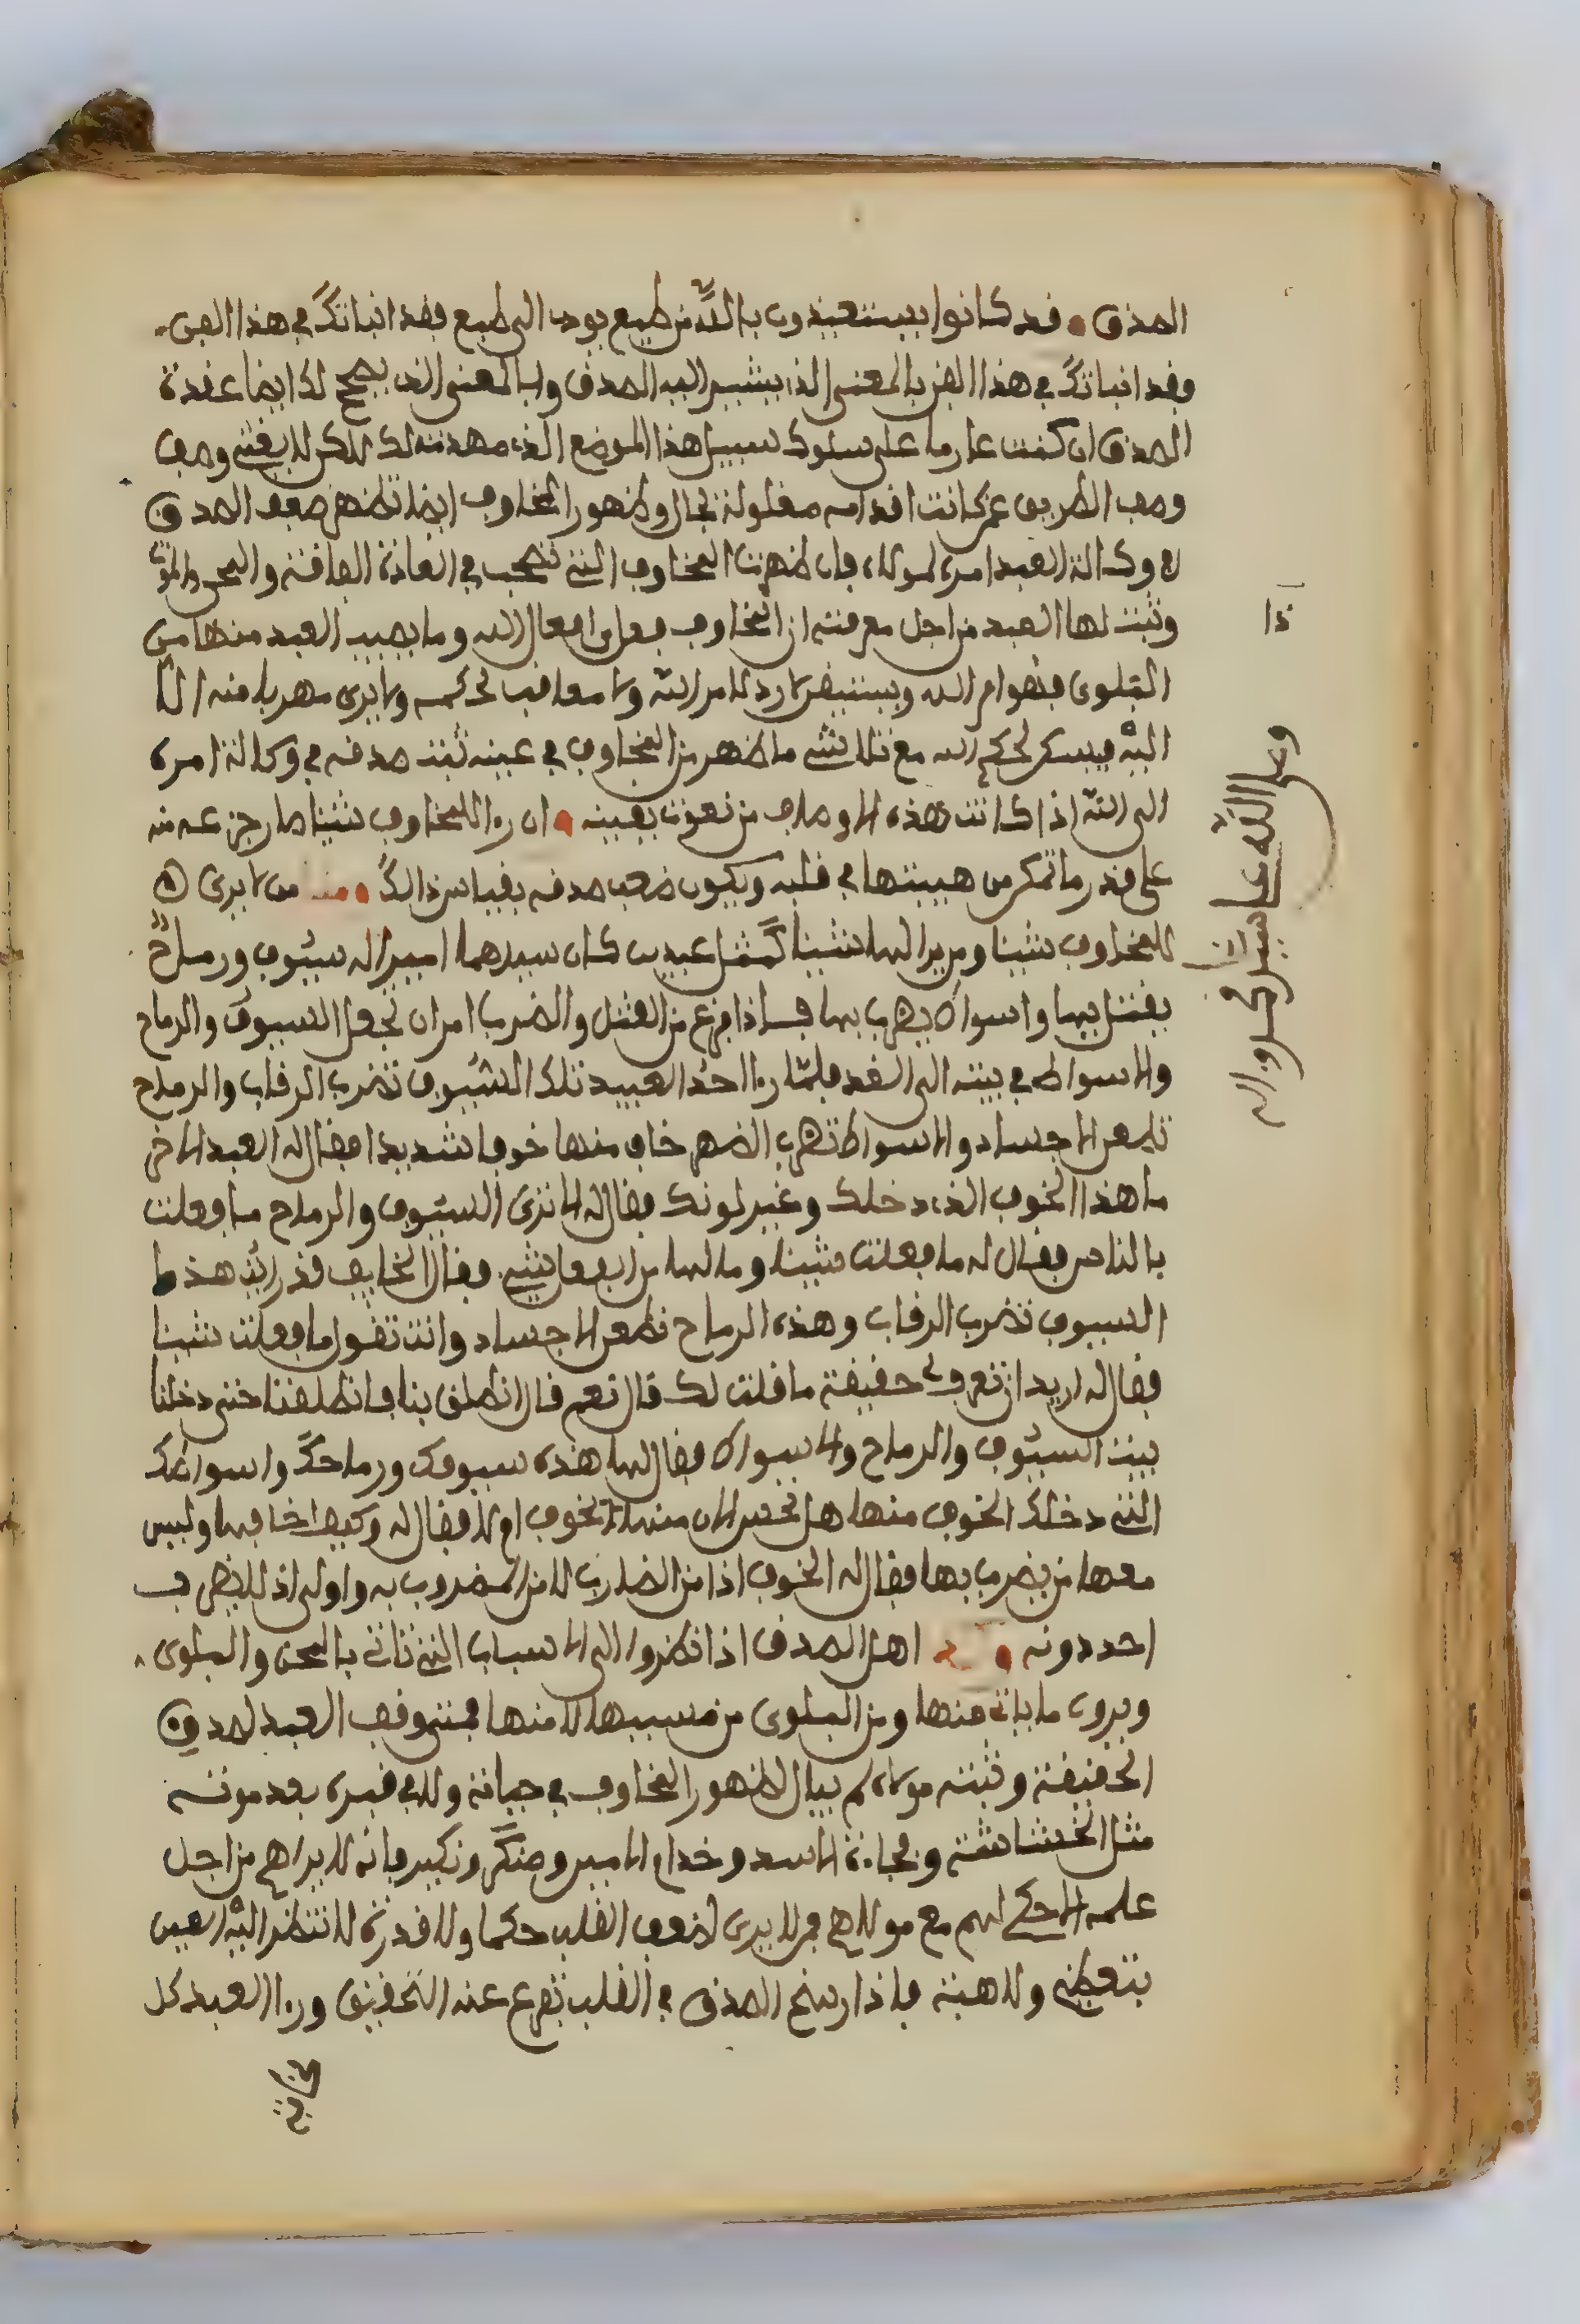 الصدق • فقد كانوا يستعيذون بالله من طمع يودي الى طمع فقد انباتك في هذا الفن
وفد انباتك في هذا الفن بالمعنى الذي يشير اليه الصدق وبالمعنى الذي يصح لك ايضا عقدة
الصدق ان كنت عازما على سلوك سبيل هذا الموضع الذي مهدته لك لاكن لا يغني وصف
وصف الطريق عمن كانت اقدامه مغلولة بحال وظهور المخاوف ايضا تظهر ضعف الصدق
في وكالة العبد امره لمولاه فان ظهرت المخاوف التي تصحب في العادة الفاقة والمحن والموت
وثبت لها العبد من اجل معرفته ان المخاوف فعل من افعال الله وما يصيب العبد منها من
البلوى فبقوام الله ويستيقن لا راد لامر الله ولا معاقب لحكمه ولا يرى مهربا منه الا
اليه فيسكن لحكم الله مع تلاشي ما ظهر من المخاوف في عينه ثبت صدقه في وكالة امره
الى الله اذا كانت هذه الاوصاف من نعوت يقينه • ان راى للمخاوف شيئا ما رجز عنه منه
على قدر ما تمكن من هيبتها في قلبه ويكون ضعف صدقه بقياس ذالك • من لا يرى
للمخاوف شيئا ومن يرى لها شيئا كمثل عبدين كان سيدهما امير اله سيوف ورماح
يقتل بها واسواط يضرب بها فاذا فرغ من القتل والضرب امر ان تجعل السيوف والرماح
والاسواط في بيته الى الغد فلما راى احد العبيد تلك السيوف تضرب الرقاب والرماح
تطعن الاجساد والاسواط تضرب الظهر خاف منها خوفا شديدا فقال له العبد الاخر
ما هذا الخوف الذي دخلك وغير لونك فقال له الا ترى السيوف والرماح ما فعلت
بالناس فقال له ما فعلت شيئا وما لها من الفعل شيء فقال الخايف قد رايت هذه
السيوف تضرب الرقاب وهذه الرماح تطعن الاجساد وانت تقول ما فعلت شيئا
فقال له اريد ان تعرف حقيقة ما قلت لك قال نعم قال انطلق بنا فانطلقنا حتى دخلنا
بيت السيوف والرماح والاسواط فقال لها هذه سيوفك ورماحك واسواطك
التي دخلك الخوف منها هل تحس الان منها الخوف ام لا فقال له وكيف اخافها وليس
معها من يضرب بها فقال له الخوف اذا من الضارب لا من المضروب به واولى اذ للنظر ب
احد دونه • اهل الصدق اذا نظروا الى الاسباب التي تاتي بالمحن والبلوى
ويرون ما ياتي منها ومن البلوى من مسببها لا منها فمتى وقف العبد لصدق
الحقيقة وثبته مولاه لم يبال لظهور المخاوف في حياته ولا في قبره بعد موته
مثل الخشاشة وفجاءة الاسد وخدام الامير ومنكر ونكير فانه لا يراهم من اجل
علمه الاحكي لهم مع مولاهم فمن لا يرى لضعف القلب حكما ولا قدرة لا تنظر اليه العين
بتعظيم ولا هيبة فاذا رسخ الصدق في القلب تفرع عنه التحقيق وراى العبد كل
اذا